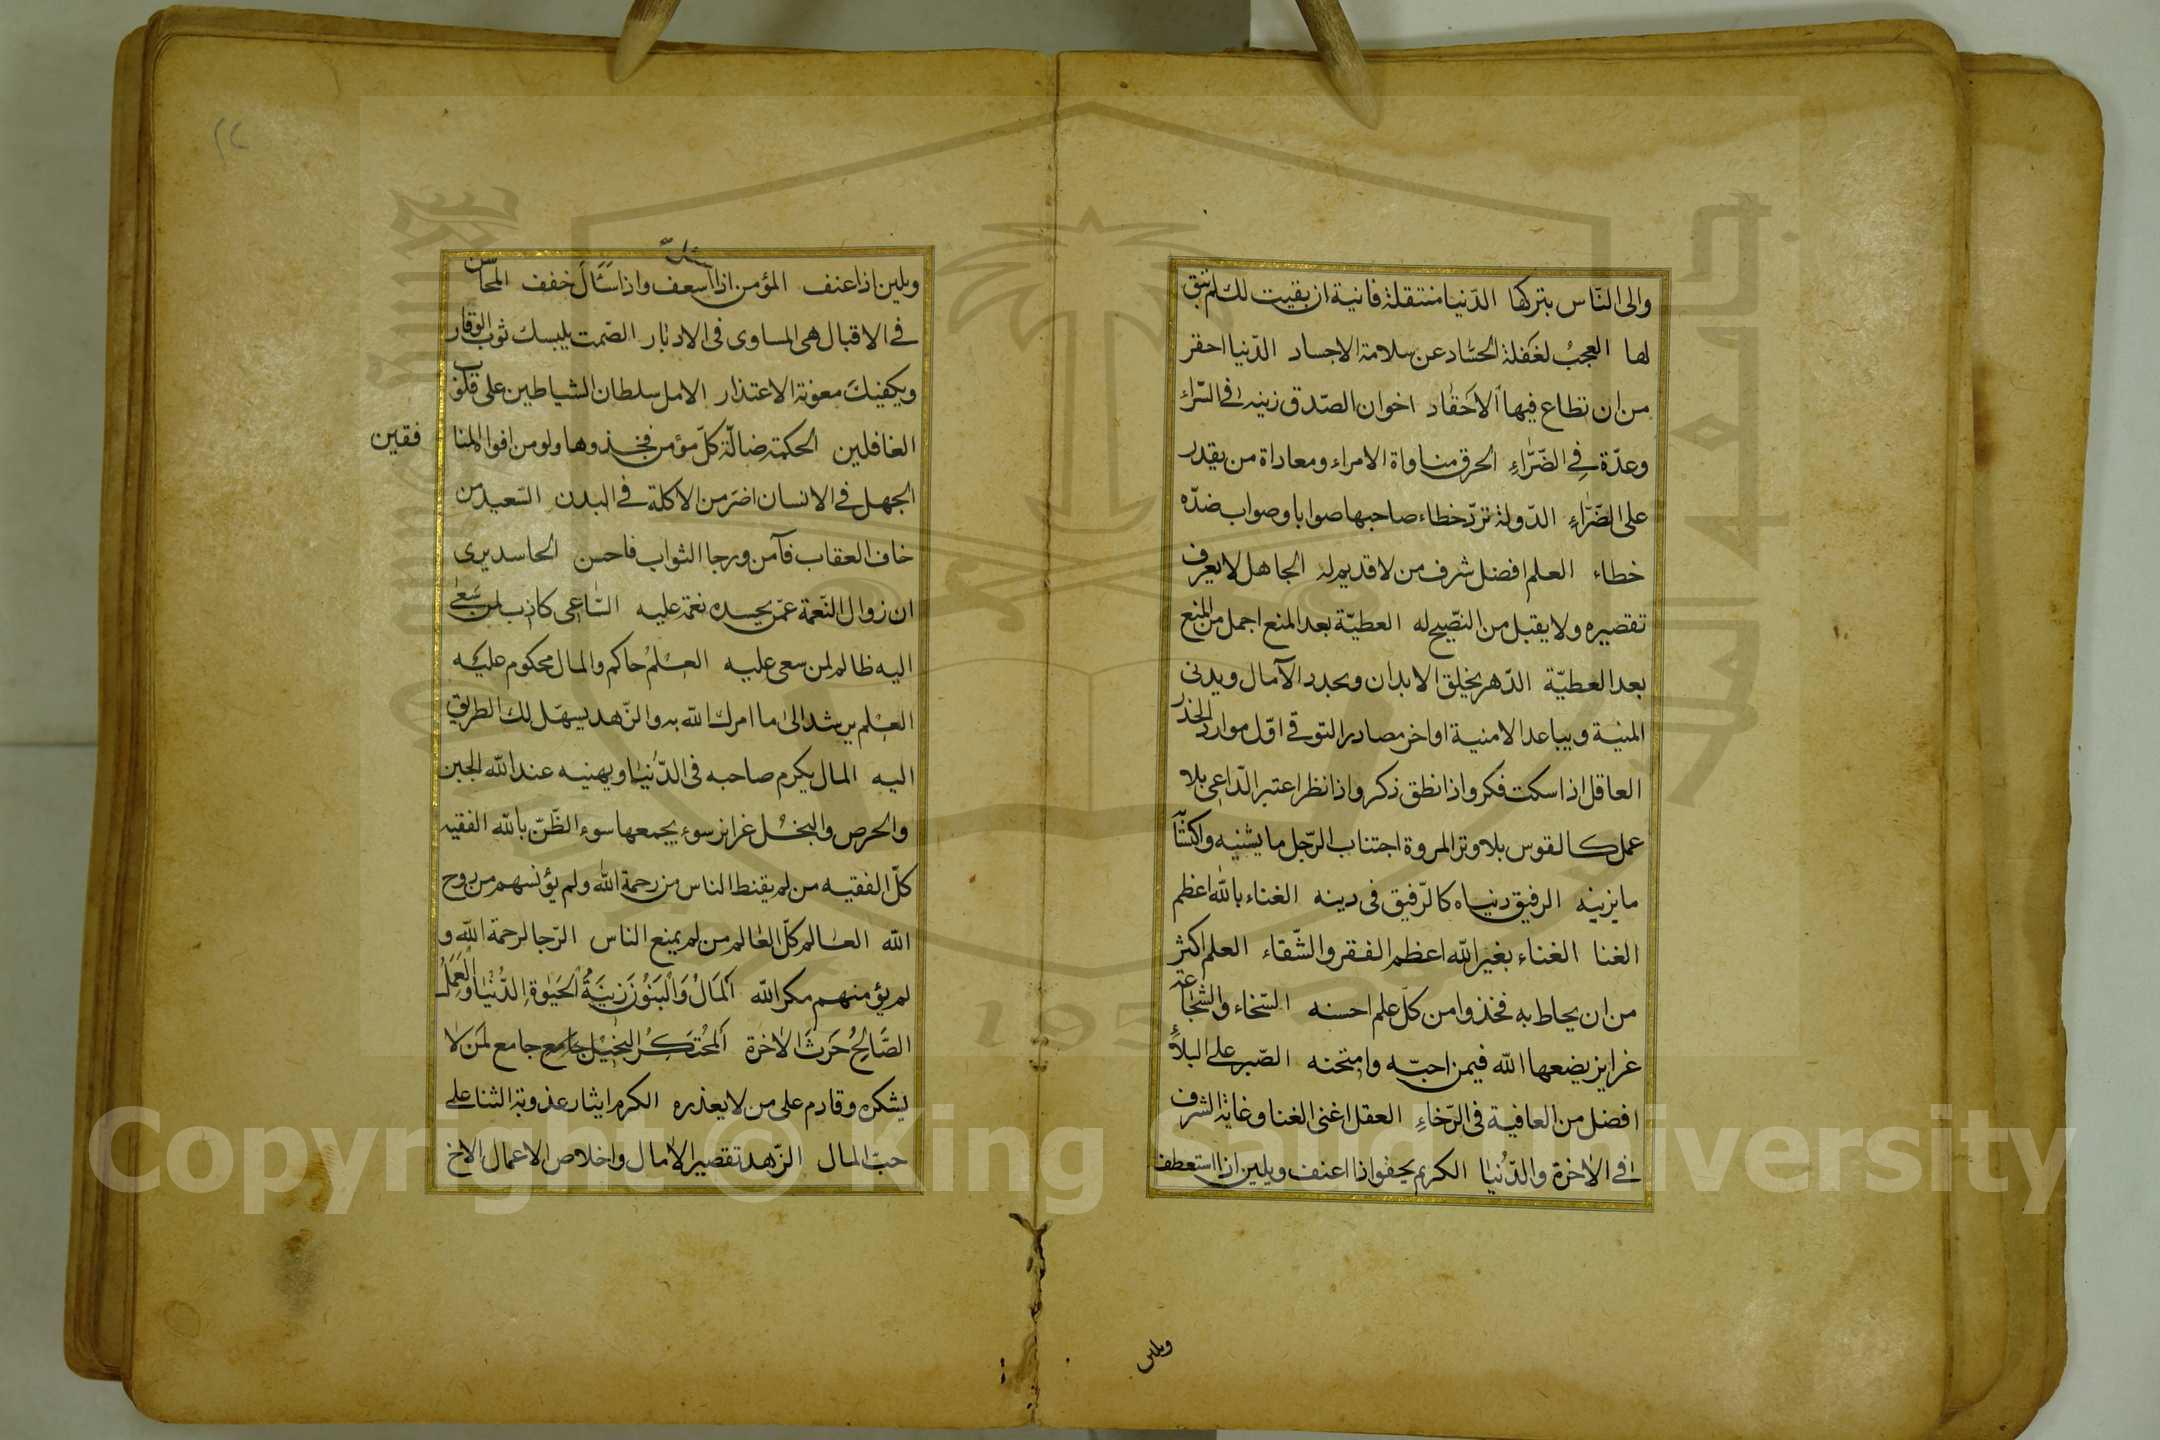 والى الناس بتركها الدّنيا منتقلة فانية ان بقيت لك لم تبق
لها العجبُ لغَفلة الحسّاد عن سلامة الاجساد الدّنيا احقر
من ان تطاع فيها الاحقاد اخوان الصّدق زينة فى السّرّاء
وعدّة فِى الضّرّاءِ الحرق مناواة الامراء ومعاداة من يقدر
على الضّرّاءِ الدّولة تردّ خطاء صاحبها صوابا وصواب ضدّه
خطاء العلم افضل شرف من لا قديم له الجاهل لا يعرف
تقصيره ولا يقبل من النّصيح له العطيّة بعد المنع اجمل من المنع
بعد العطيّة الدّهر يخلق الابدان ويجدد الآمال ويدنى
المنية ويباعد الامنية اواخر مصادر التوقى اوّل موارد الحذر
العاقل اذا سكت فكر واذا نطق ذكر واذا نظر اعتبر الدّاعى بلا
عمل كالقوس بلا وتر المروة اجتناب الرّجل ما يشنيه واكتسآ
ما يزنيه الرفيق دنياه كالرّفيق فى دينه الغناء بالله اعظم
الغنا الغناء بغير الله اعظم الفقر والشّقاء العلم اكثر
من ان يحاط به فخذوا من كلّ علم احسنه السّخاء والشّجاعة
غرايز يضعها الله فيمن احبّه وامتحنه الصّبر على البلاءِ
افضل من العافية فى الرّخاءِ العقل اغنى الغنا وغاية الشرف
فى الاخرة والدّنيا الكريم يجفو اذا اعنف ويلين اذا استعطف
ويلين
ويلين اذا عنف المؤمن اذا اسعف واذا سَئَالَ خفف المحاسن
فى الاقبال هى المساوى فى الادبار الصّمت يلبسك ثوب الوقار
ويكفيك معونة الاعتذار الامل سلطان الشياطين على قلوب
الغافلين الحكمة ضالّة كلّ مؤمن فخذوها ولو من افواه المنا
فقين
الجهل فى الانسان اضر من الاكلة فى البدن السّعيد من
خاف العقاب فآمن ورجا الثواب فاحسن الحاسد يرى
ان زوال النّعمة عمّن يحسده نعمة عليه السّاعى كاذب لمن سَعى
اليه ظالم لمن سعى عليه العلم حاكم والمال محكوم عليه
العلم يرشد الى ما امرك الله به والزّهد يسهّل لك الطريق
اليه المال يكرم صاحبه فى الدّنيا ويهينه عند الله الجبن
والحرص والبخل غرايز سوء يجمعها سوء الظّنّ بالله الفقيه
كلّ الفقيه من لم يقنط الناس من رحمة الله ولم يؤنسهم من روح
الله العالم كلّ العالم من لم يمنع الناس الرّجا لرحمة الله و
لم يؤمنهم مكر الله اَلمَالُ وَالْبَنُوْنَ زِيْنَةُ الْحَيٰوةِ الدُّنْيَا وَالعَمَلُ
الصَّالِحُ حَرَثَ الاٰخرة اَلْمُحْتَكِرُ الْبَخِيْلُ جامع لمَن لا
يشكره وقادم على من لا يعذره الكرم ايثار عذوبة الثنا على
حبّ المال الزّهد تقصير الامال واخلاص الاعمال الاخ
Copyright © King Saud University
1957